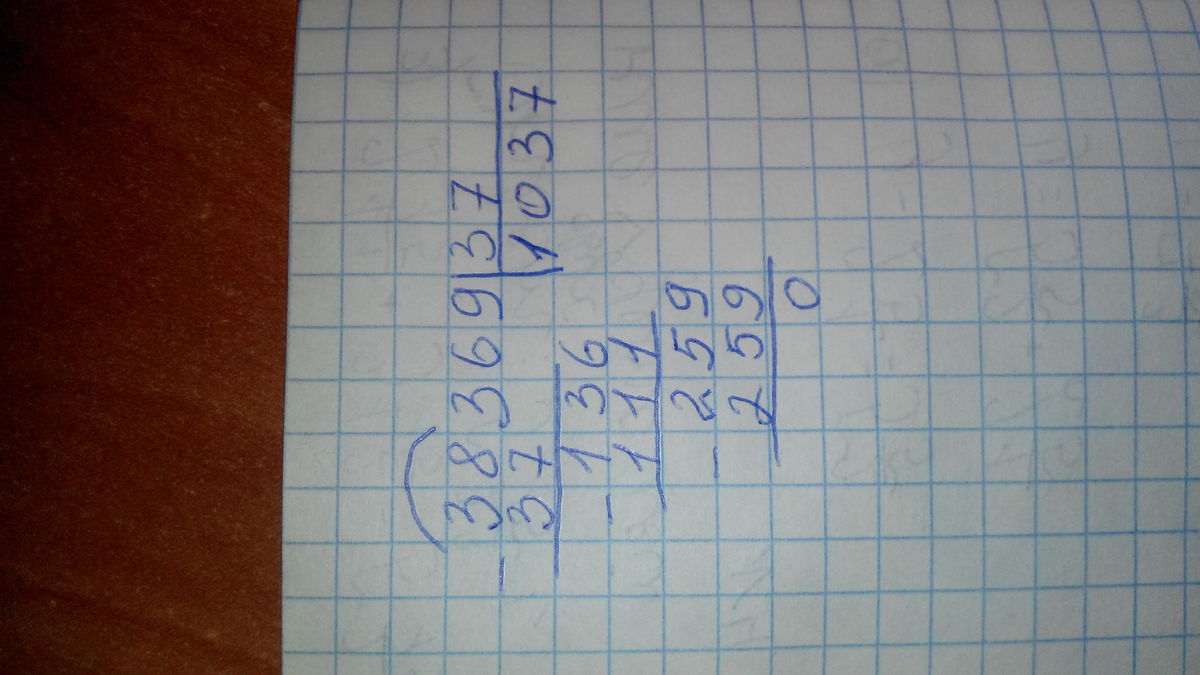 - 38369 | 37
37 | 1037
- 136
111
- 259
259
0